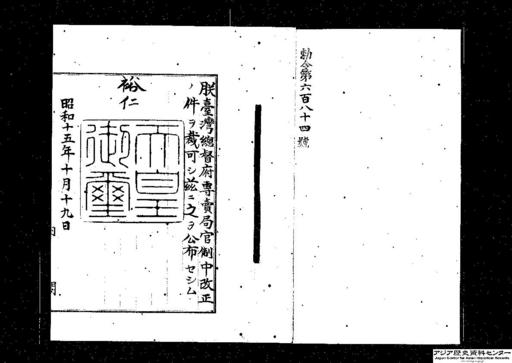 勅令第六百八十四號
朕臺灣總督府專賣局官制中改正
ノ件ヲ裁可シ茲ニ之ヲ公布セシム
裕仁
天皇
御璽
昭和十五年十月十九日
内閣
アジア歴史資料センター
Japan Center for Asian Historical Records